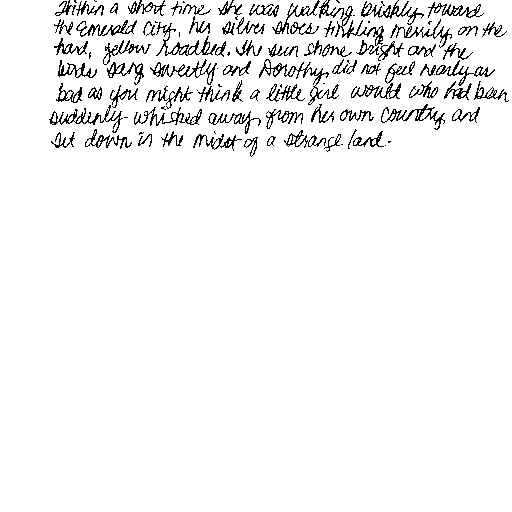 Within a short time she was walking briskly toward
the Emerald City, her silver shoes tinkling merrily on the
hard, yellow roadbed. The sun shone bright and the
birds sang sweetly and Dorothy did not feel nearly as
bad as you might think a little girl would who had been
suddenly whisked away from her own country and
set down in the midst of a strange land.